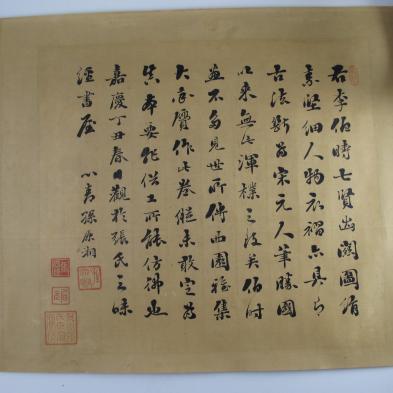 右李伯時七賢出關圖絹
素堅細人物衣褶亦具有
古法斷為宋元人筆勝國
以來無此渾樸之技矣伯時
畫不多見世所傳西園雅集
大約贗作此卷縱未敢定為
真本要非俗工所能仿佛也
嘉慶丁丑春日觀於張氏三味
經書屋 心青孫原湘